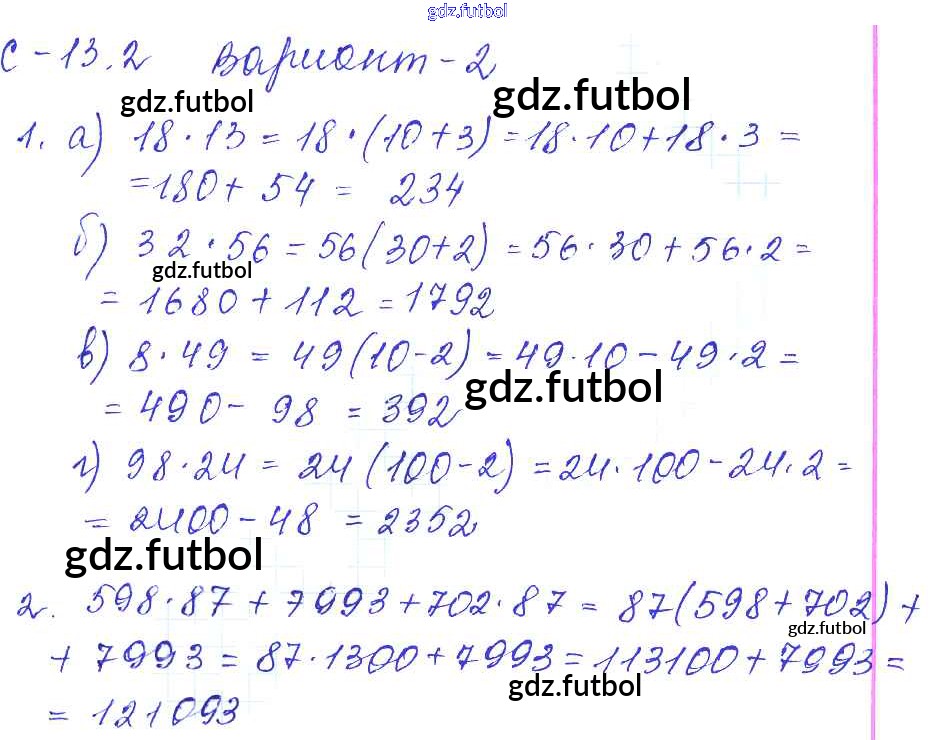 gdz.futbol
С-13.2 Вариант-2
gdz.futbol gdz.futbol
1. а) 18·13 = 18·(10+3) = 18·10+18·3 =
=180+54 = 234
б) 32·56 = 56(30+2) = 56·30+56·2 =
gdz.futbol
= 1680+112 = 1792
в) 8·49 = 49(10-2) = 49·10-49·2 =
gdz.futbol
= 490- 98 = 392
г) 98·24 = 24(100-2) = 24·100-24·2 =
= 2400-48 = 2352
gdz.futbol
2. 598·87+7993+702·87 = 87(598+702)+
gdz.futbol
+ 7993 = 87·1300+7993 = 113100+7993 =
gdz.futbol
= 121093